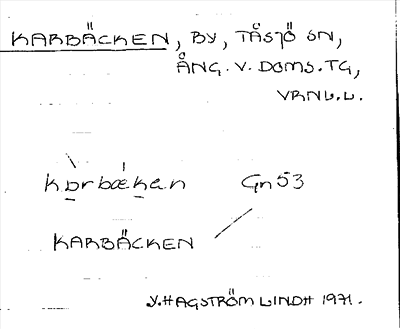 KARBÄCKEN, BY, TÅSJÖ SN,
ÅNG. V. DOMS. TG,
VRNL.L.
kɒrbækan Gn 53
KARBÄCKEN
Y. HAGSTRÖM LINDH 1971.